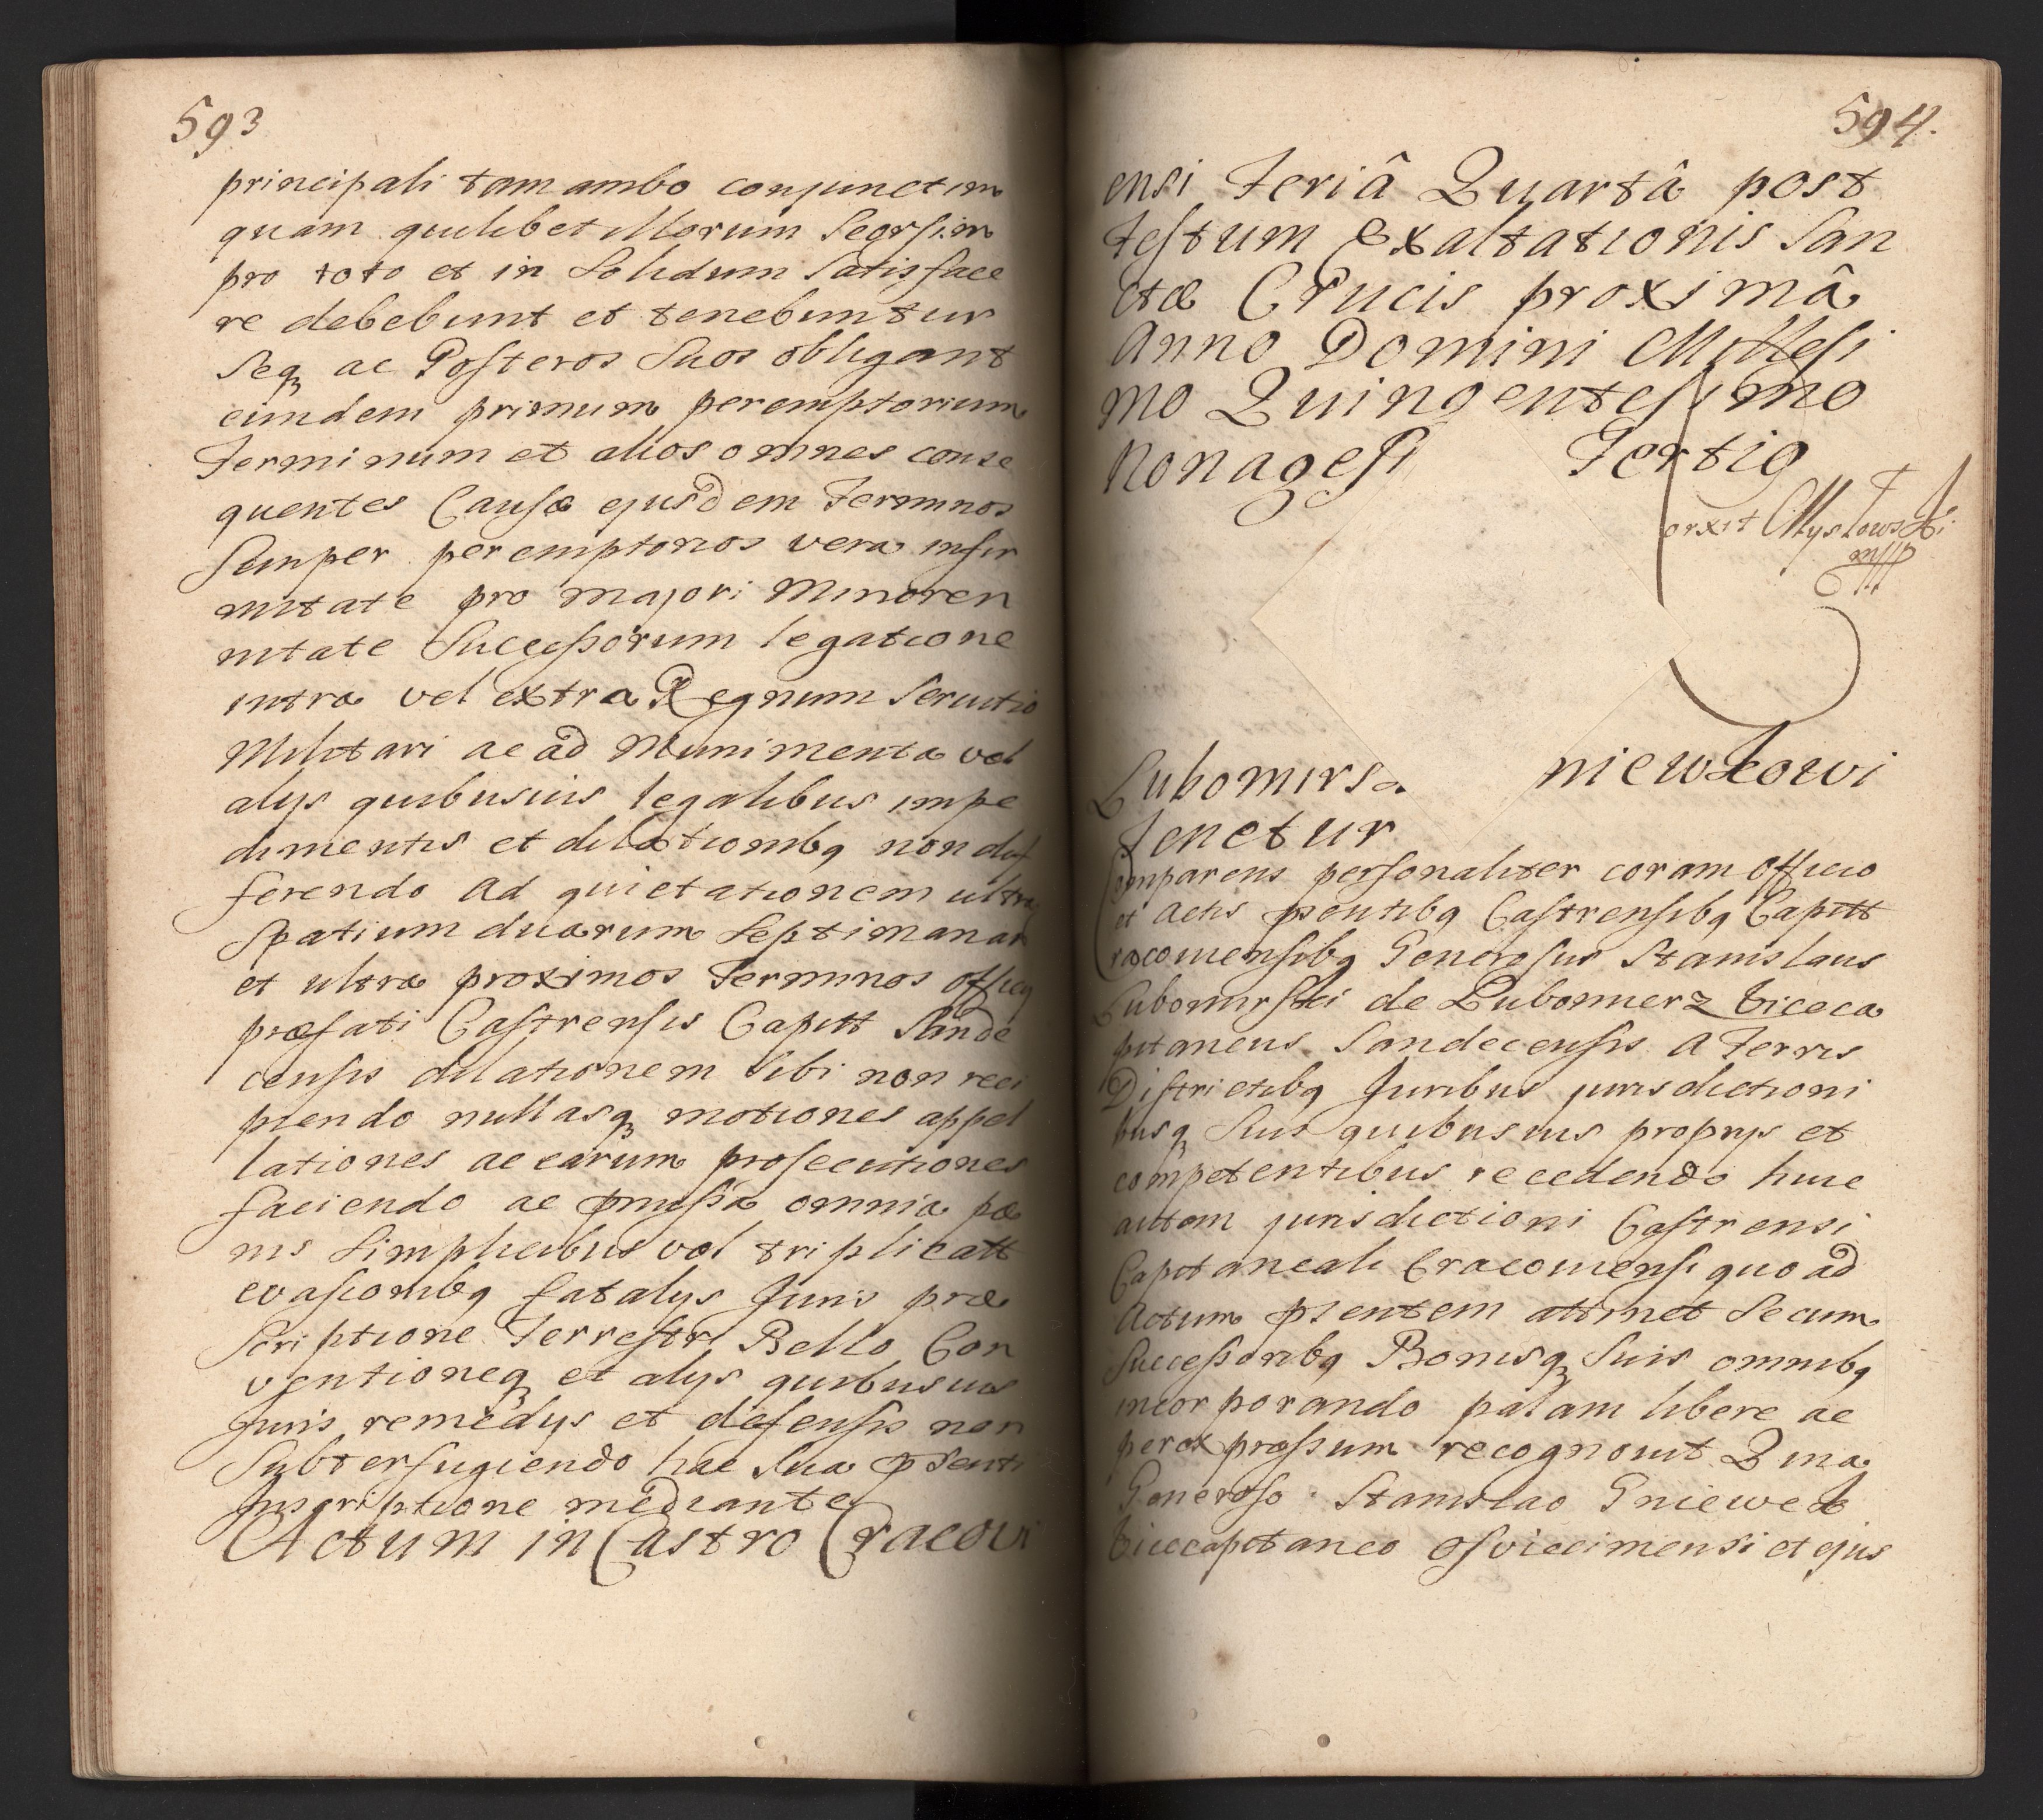 593
principali tam ambo conjunctim
quam quilibet illorum Seorsim
pro toto et in Solidum Satisface
re debebunt et tenebuntur
Seq₃ ac Posteros Suos obligant
eiundem primum peremptorium
Terminum et alios omnes conse
quentes Causæ ejusdem Terminos
Semper peremptorios vera infir
mitate pro majori Minoren
nitate Successorum legatione
intra vel extra Regnum Servitio
Militari ac ad Munimenta vel
alijs quibusuis legalibus impe
dimentis et dilationibq non dif
ferendo ad quietationem ultra
Spatium duarum Septimanar
et ultra proximos Terminos officij
præfati Castrensis Capitt Sande
censis dilationem Sibi non reci
piendo nullasq₃ motiones appel
lationes ac earum prosecutiones
faciendo ac pmissa omnia pœ
nis Simplicibus vel triplicatt
evasionibq fatalijs Juris præ
Scriptione Terrestri Bello Con
ventioneq₃ et alijs quibusuis
Juris remedijs et defensis non
Subterfugiendo hac Sua psenti
Inscriptione mediante
Actum in Castro Cracovi
594.
ensi Feriâ Quartâ post
Festum Exaltationis San
ctæ Crucis proximâ
Anno Domini Millesi
mo Quingentesimo
Nonagesi Tertio
erxit Mystowski
mpp
Lubomirs niewkowi
Tenetur
Comparens personaliter coram Officio
et Actis psentibq Castrensibq Capitt
racoviensibq Generosus Stanislaus
Lubomirski de Lubomierz Viceca
pitaneus Sandecensis a Terris
Districtibq Juribus jurisdictioni
busq₃ Suis quibusuis proprijs et
competentibus recedendo huic
autem jurisdictioni Castrensi
Capitaneali Cracoviensi quo ad
Actum psentem attinet Secum
Successoribq Bonisq₃ Suis omnibq
incorporando palam libere ac
per expressum recognovit Quia
Generoso Stanislao Gniewek
Vicecapitaneo Osviecimensi et ejus